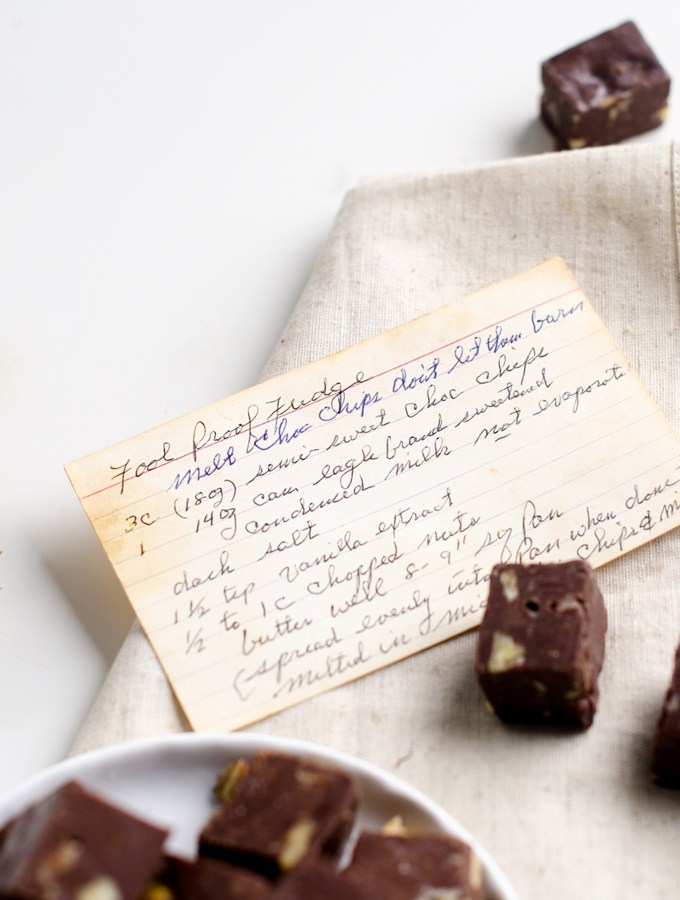 Fool Proof Fudge
melt choc chips don't let them burn
3c (18oz) semi-sweet choc chips
1 14oz can eagle brand sweetened
condensed milk not evaporate
dash salt
1 1/2 tsp vanilla extract
1/2 to 1c chopped nuts
butter well 8-9" sq pan
(spread evenly into pan when done -
melted in mic chips & mi